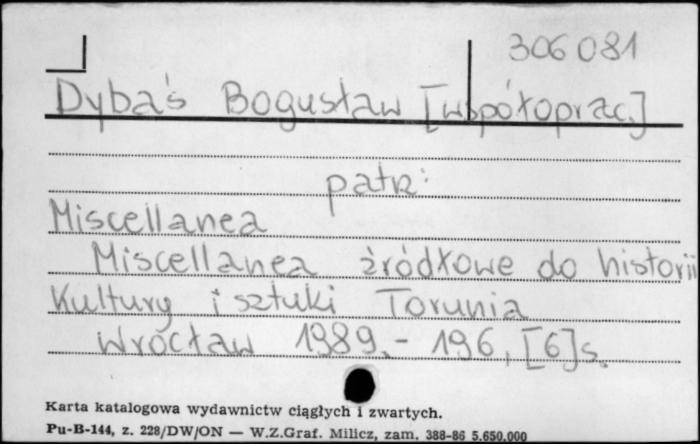 306081
Dybaś Bogusław [współoprac.]
patrz:
Miscellanea
Miscellanea źródłowe do historii
Kultury i sztuki Torunia
Wrocław 1989.- 196, [6] s.
Karta katalogowa wydawnictw ciągłych i zwartych.
Pu-B-144, z. 228/DW/ON — W.Z.Graf. Milicz, zam. 388-86 5.650.000